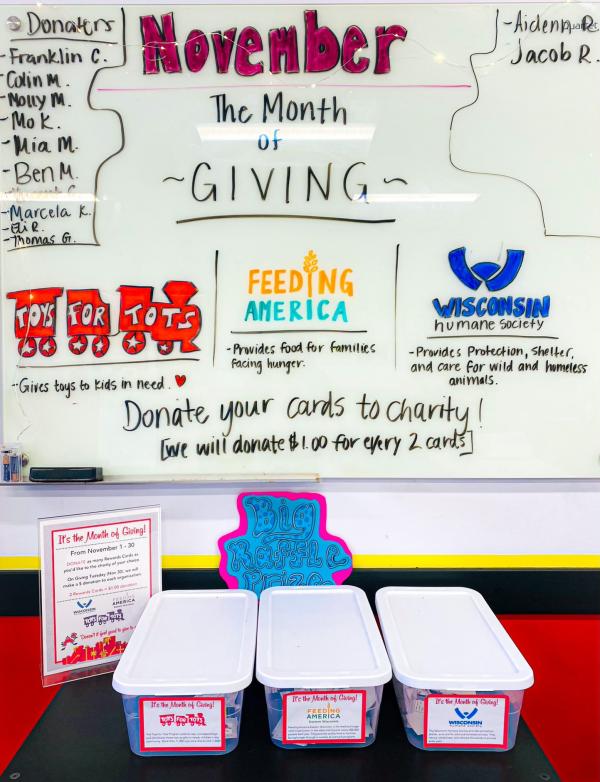 Donaters
-Franklin C.
-Colin M.
-Molly M.
-Mo K.
-Mia M.
-Ben M.
-Marcela K.
-Eli R.
-Thomas G.
November
The Month
of
~GIVING~
-Aidenn R.
Jacob R.
quartet
TOYS FOR TOTS
-Gives toys to kids in need.
FEEDING
AMERICA
-Provides food for families
facing hunger.
WISCONSIN
humane society
-Provides Protection, Shelter,
and care for wild and homeless
animals.
Donate your cards to charity!
[we will donate $1.00 for every 2 cards]
Big
Raffle
Prize
It's the Month of Giving!
From November 1 - 30
DONATE as many Rewards Cards as
you'd like to the charity of your choice
On Giving Tuesday (Nov 30), we will
make a $ donation to each organization.
2 Rewards Cards = $1.00 donation
WISCONSIN
FEEDING
AMERICA
TOYS FOR TOTS
It's the Month of Giving!
TOYS FOR TOTS
It's the Month of Giving!
FEEDING
AMERICA
Eastern Wisconsin
It's the Month of Giving!
WISCONSIN